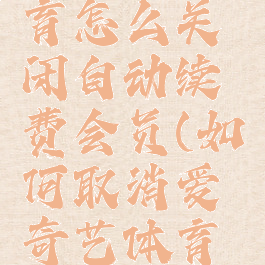 育怎么关
闭自动续
费会员(如
何取消爱
奇艺体育